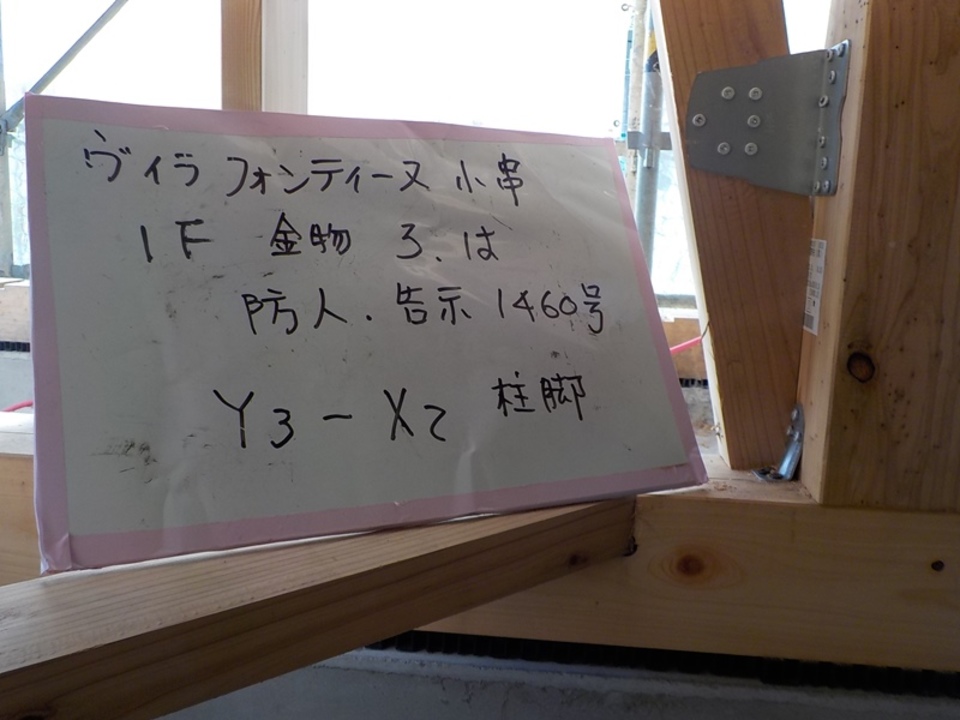 ヴィラ フォンティーヌ 小串
1F 金物 3.は
防人.告示 1460号
Y3-X2 柱脚